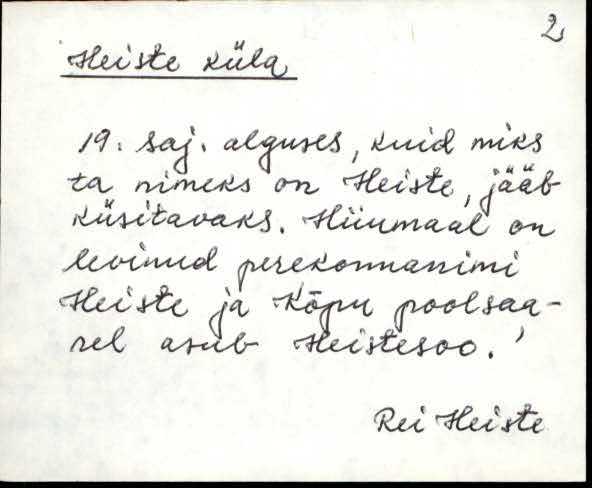 2
Heiste küla
19. saj. alguses, kuid miks
ta nimeks on Heiste, jääb
küsitavaks. Hiiumaal on
levinud perekonnanimi
Heiste ja Kõpu poolsaa-
rel asub Heistesoo.'
Rei Heiste